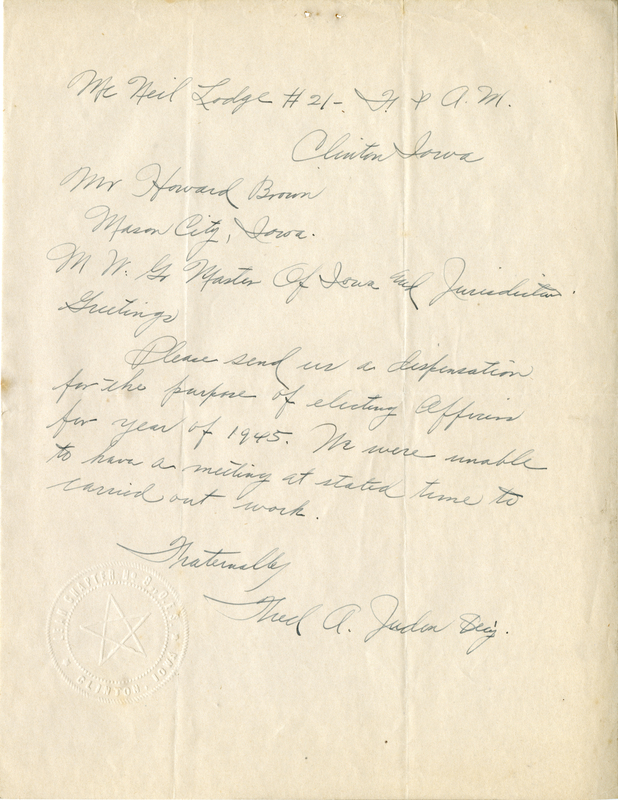 Mc Neil Lodge # 21 - F. & A. M.
Clinton Iowa
Mr Howard Brown
Mason City, Iowa.
M W. Gr Master Of Iowa and Jurisdiction.
Greetings
Please send us a dispensation
for the purpose of electing Officers
for year of 1945. We were unable
to have a meeting at stated time to
carried out work.
Fraternally
Fred A. Juden Secy.
CHAPTER
CLINTON, IOWA